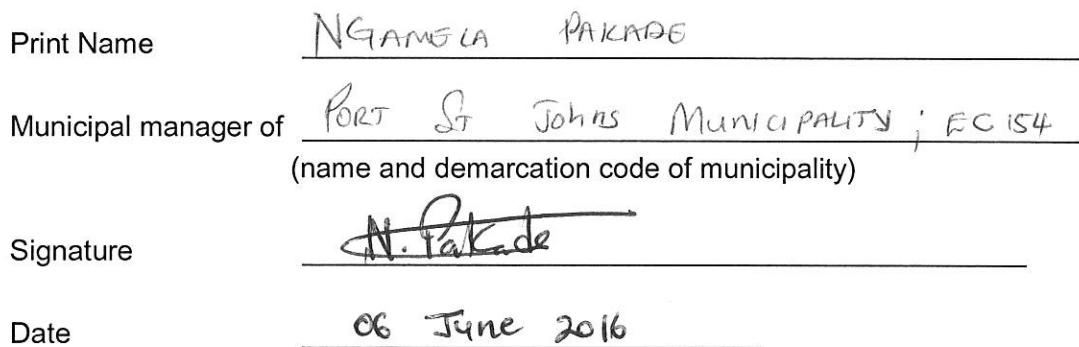 Print Name NGAMELA PAKADE
Municipal manager of PORT ST Johns MUNICIPALITY ; EC 154
(name and demarcation code of municipality)
Signature N. Pakade
Date 06 June 2016